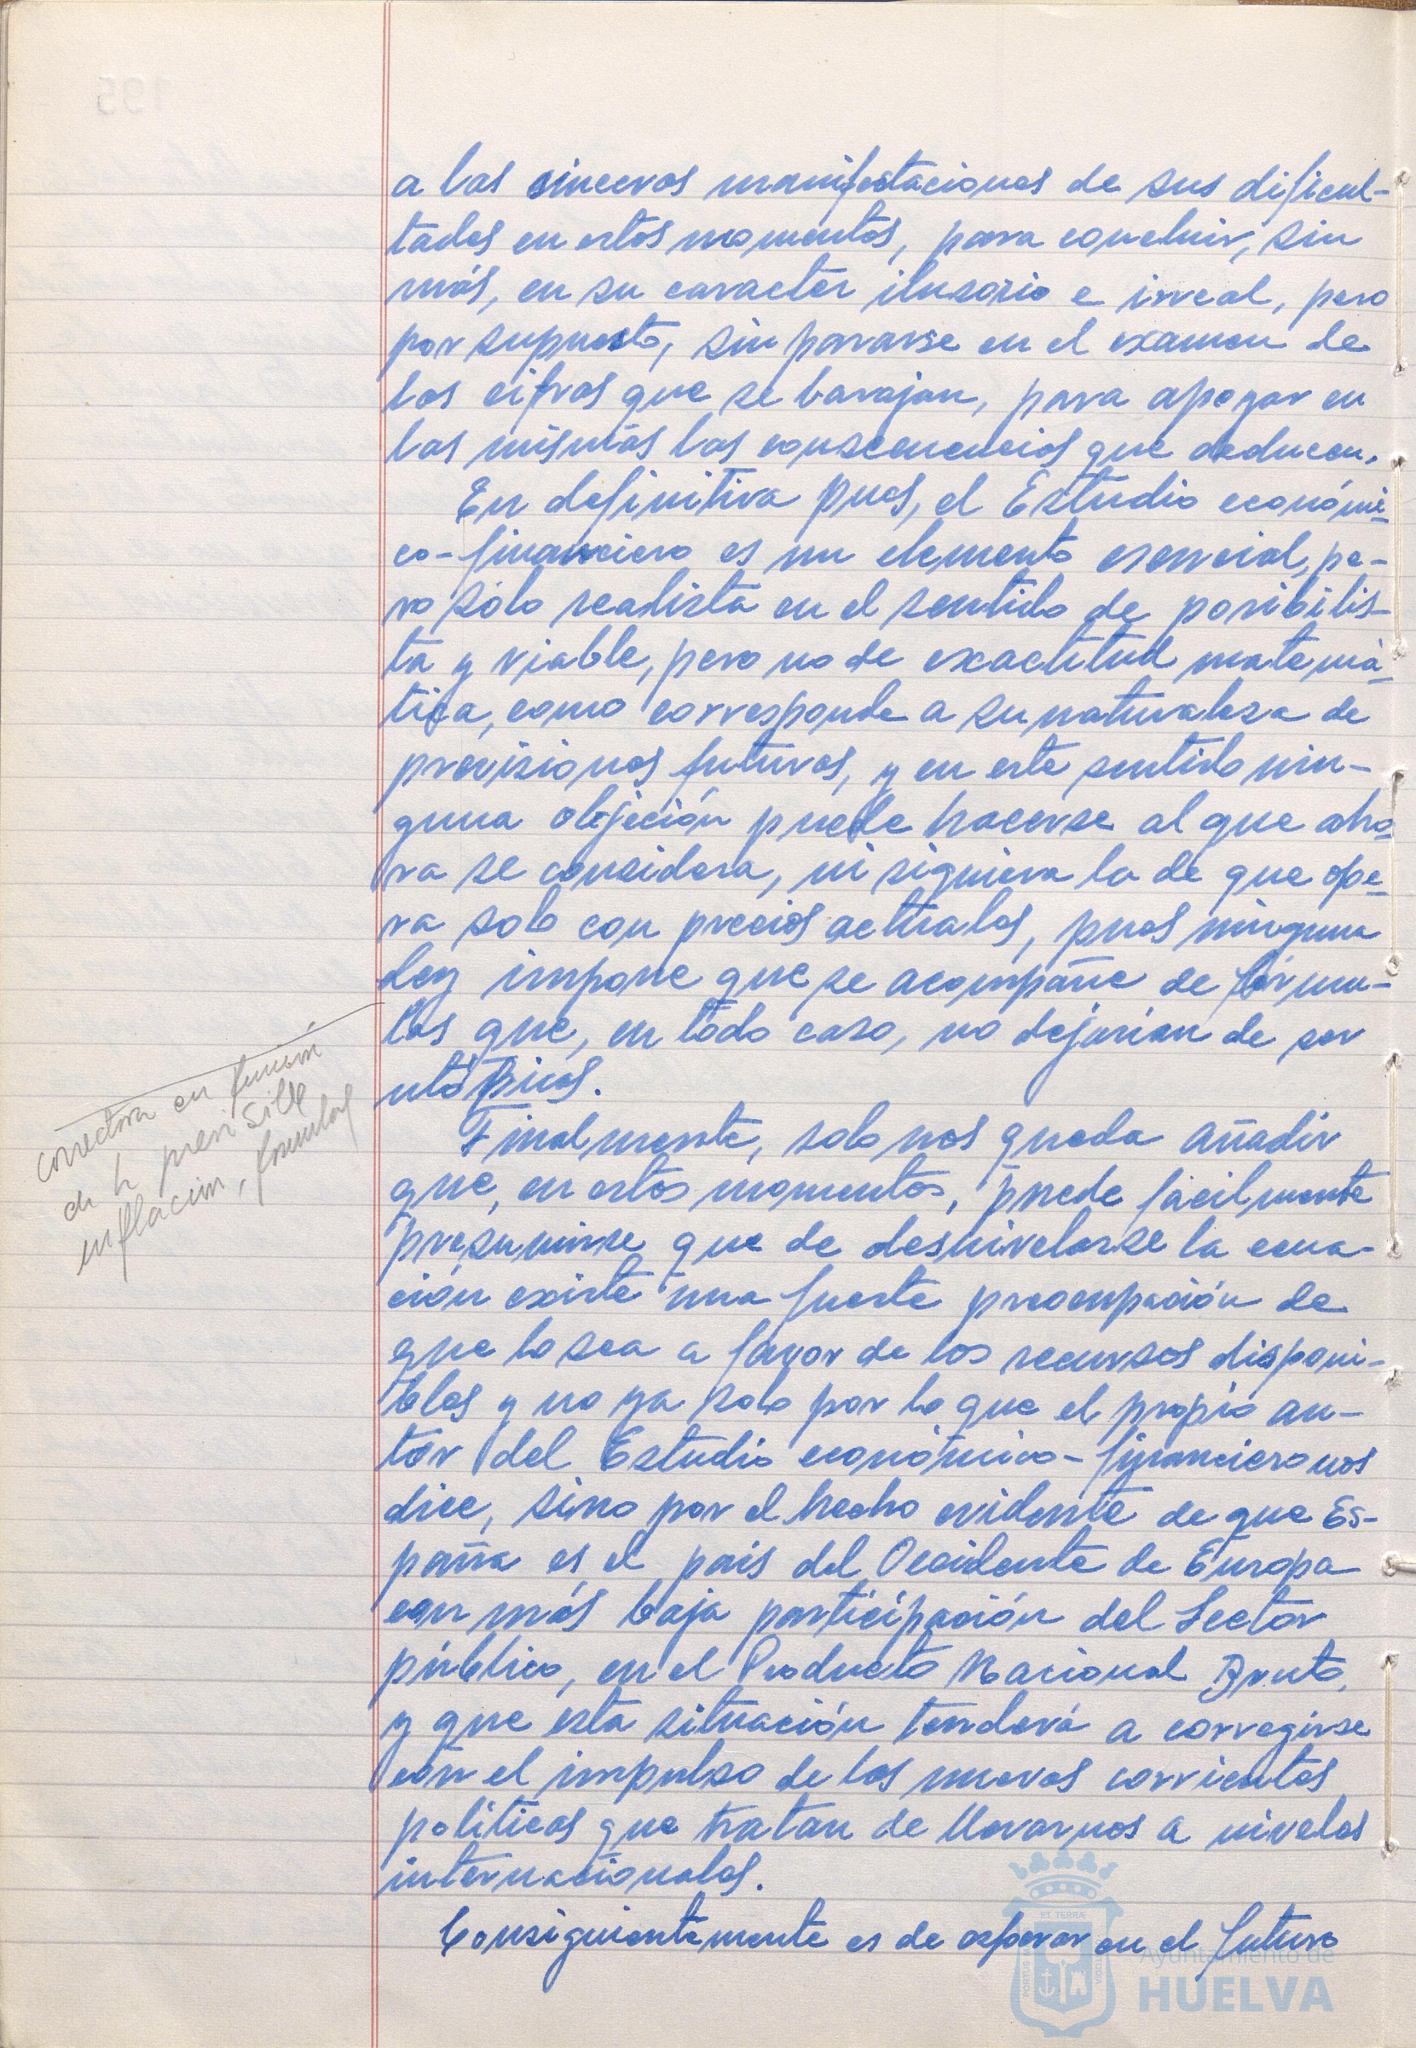 a las sinceras manifestaciones de sus dificul-
tades en estos momentos, para concluir, sin
más, en su caracter ilusorio e irreal, pero
por supuesto, sin pararse en el examen de
las cifras que se barajan, para apoyar en
las mismas las consecuencias que deducen.
En definitiva pues, el Estudio económi-
co-financiero es un elemento esencial, pe-
ro sólo realista en el sentido de posibilis-
ta y viable, pero no de exactitud matemá-
tica, como corresponde a su naturaleza de
previsiones futuras, y en este sentido nin-
guna objeción puede hacerse al que aho-
ra se considera, ni siquiera la de que ope-
ra solo con precios actuales, pues ninguna
Ley impone que se acompañe de fórmu-
las que, en todo caso, no dejarian de ser
utópicas.
correctora en función
de la previsible
inflación, formulas
Finalmente, solo nos queda añadir
que, en estos momentos, puede fácilmente
presumirse que de desnivelarse la ecua-
ción existe una fuerte preocupación de
que lo sea a favor de los recursos disponi-
bles y no ya solo por lo que el propio au-
tor del Estudio económico-financiero nos
dice, sino por el hecho evidente de que Es-
paña es el pais del Occidente de Europa
con más baja participación del Sector
público, en el Producto Nacional Bruto,
y que esta situación tenderá a corregirse
con el impulso de las nuevas corrientes
politicas que tratan de llevarnos a niveles
internacionales.
Consiguientemente es de esperar en el futuro
Ayuntamiento de
HUELVA